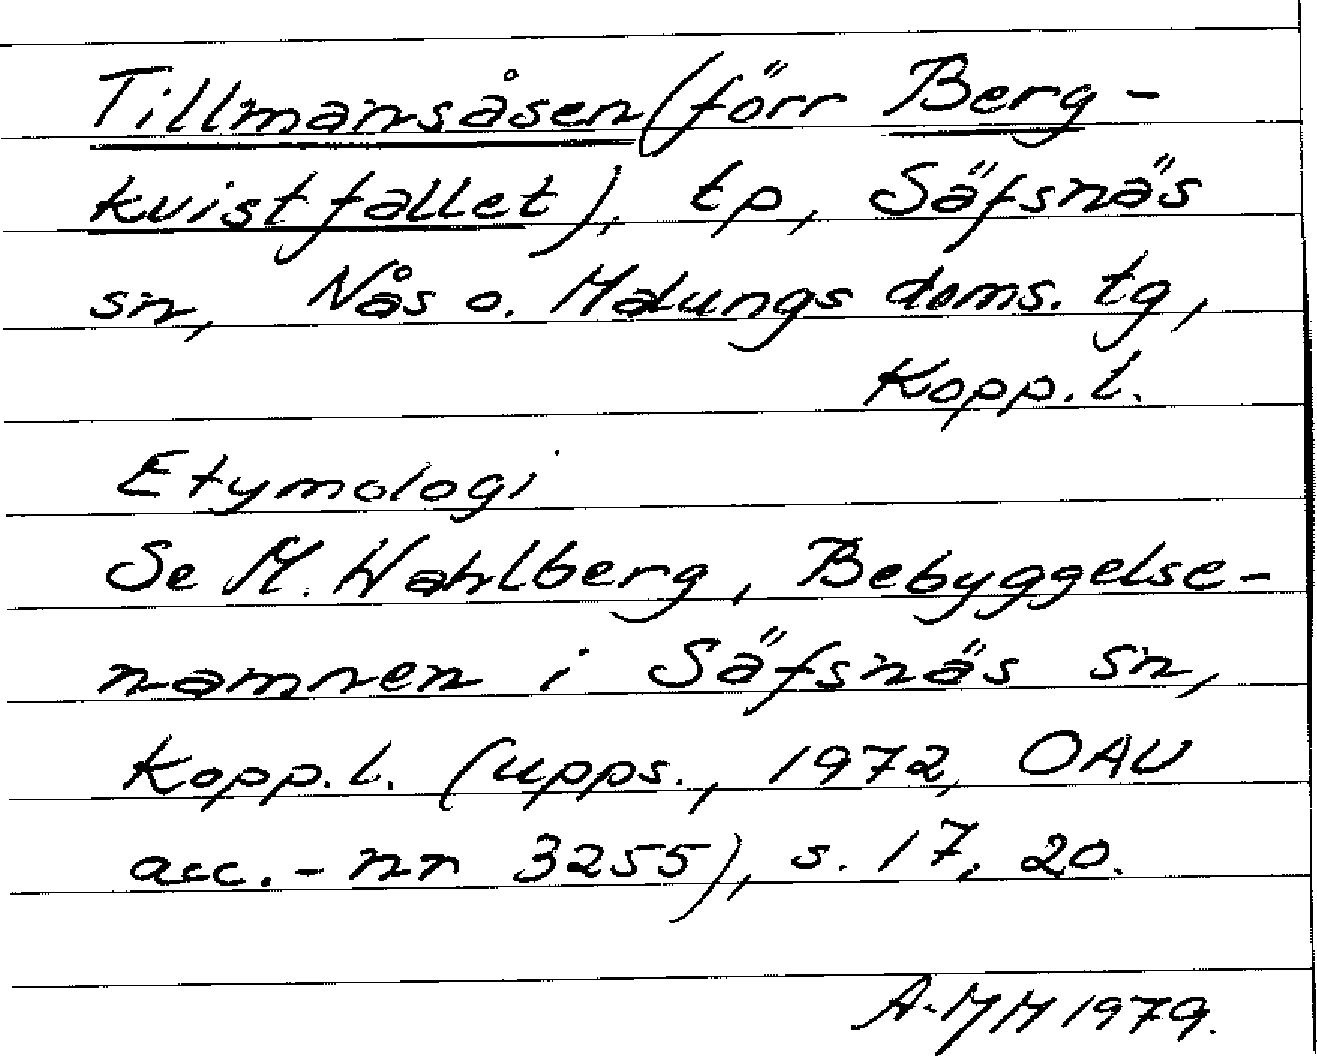 Tillmansåsen (förr Berg-
kvistfallet), tp, Säfsnäs
sn, Nås o. Malungs doms. tg,
Kopp. l.
Etymologi
Se M. Wahlberg, Bebyggelse-
namnen i Säfsnäs sn,
Kopp. l. (upps., 1972, OAU
acc.-nr 3255), s. 17, 20.
A-MH 1979.